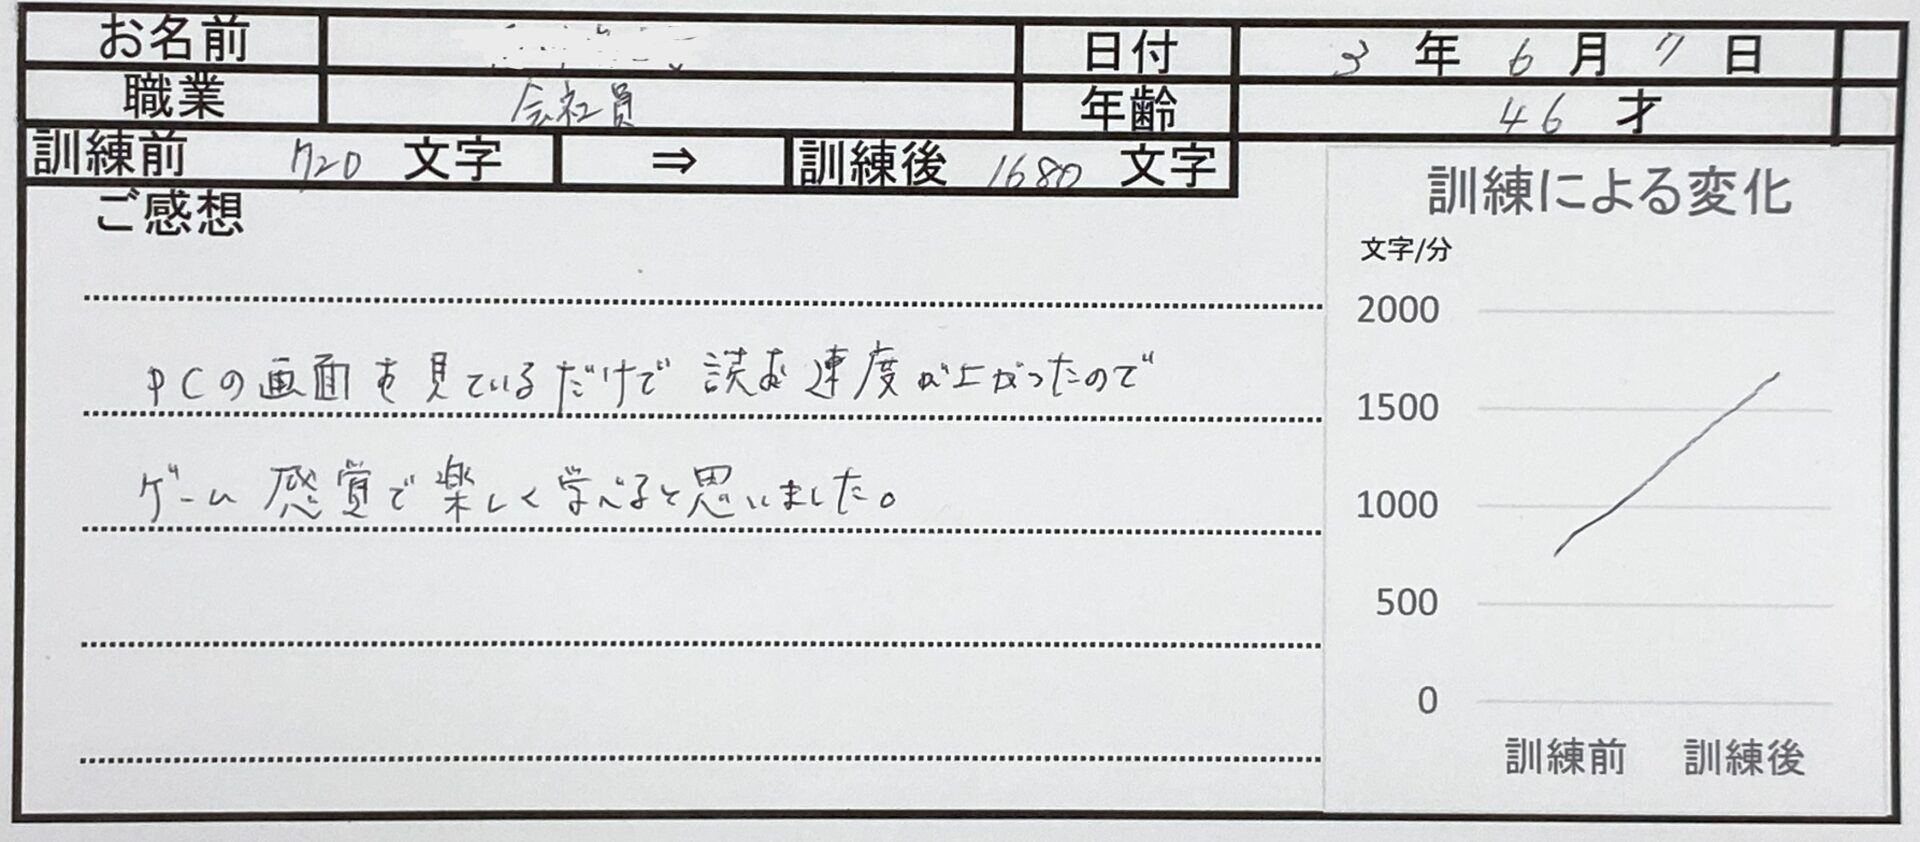 お名前 日付 3 年 6 月 7 日
職業 会社員 年齢 46 才
訓練前 720 文字 ⇒ 訓練後 1680 文字
ご感想
PCの画面を見ているだけで読む速度が上がったので
ゲーム感覚で楽しく学べると思いました。
訓練による変化
文字/分
2000
1500
1000
500
0
訓練前 訓練後